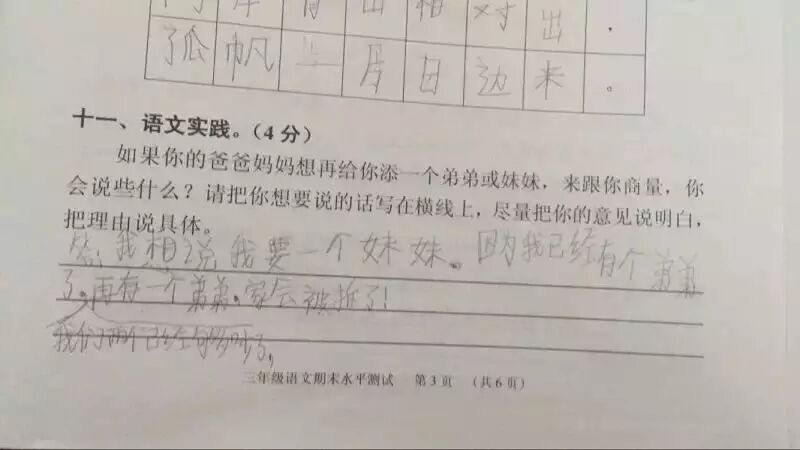 对出.
孤帆一片日边来。
十一、语文实践。(4分)
如果你的爸爸妈妈想再给你添一个弟弟或妹妹,来跟你商量,你
会说些什么?请把你想要说的话写在横线上,尽量把你的意见说明白,
把理由说具体。
答:我相说我要一个妹妹。因为我已经有个弟弟
了。再有一个弟弟,家会被拆了!
我们两个已经够吵了,
三年级语文期末水平测试 第3页 (共6页)